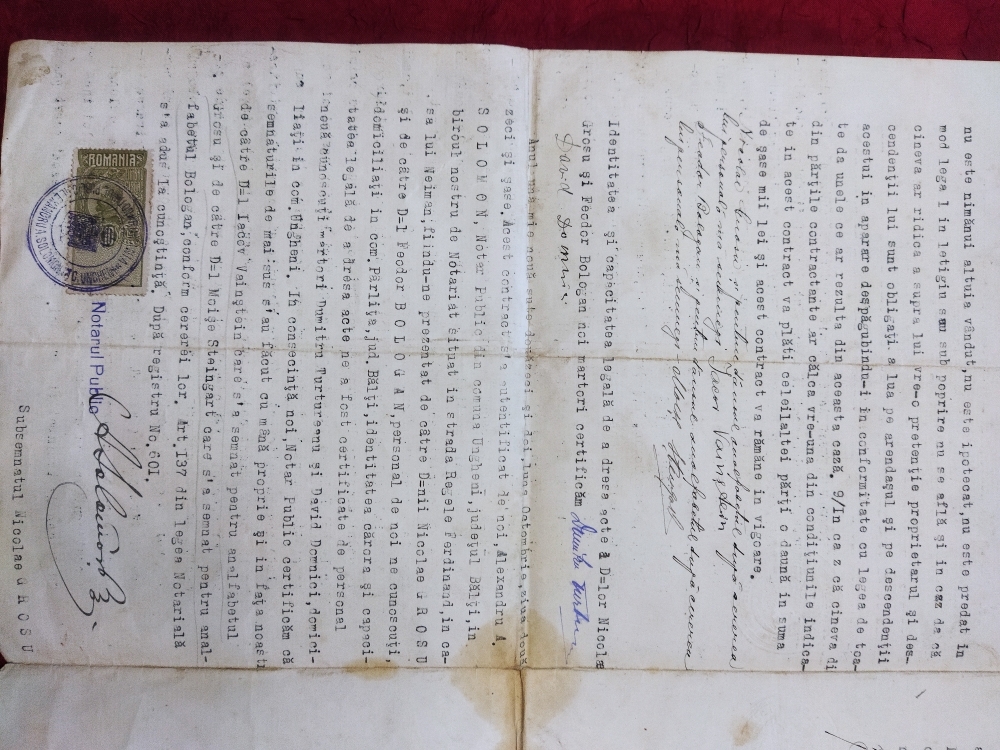 nu este nimănui altuia vândut,nu este ipotecat,nu este predat in
mod lega l in letigiu sau sub poprire nu se află și in caz da că
cineva ar ridica a supra lui vre-o pretenție proprietarul și des-
cendenții lui sunt obligați a lua pe arendașul și pe descendenții
acestui in aparare despăgubindu-i in conformitate cu legea de toa-
te da unele ce ar rezulta din aceasta cază. 9/In ca z că cineva di
din părțile contractante ar călca vre-una din condițiunile indica-
te in acest contract va plăti celeilaltei părți o daună in suma
de șase mii lei și acest contract va rămâne in vigoare.
Nicolae Grosu și pentru dânsul analfabetul după cererea
lui personală mă subscriu Iacov Vainștein
Feodor Bologan și pentru dânsul analfabetul după cererea
lui personală mă
Identitatea și capacitatea legală de a dresa acte a D=lor Nicolae
Grosu și Feodor Bologan noi martori certificăm
David Domnici
Anul una mie nouă sute douăzeci și doi,luna Octombrie,ziua două
zeci și șase. Acest contract s'a autentificat de noi, Alexandru A.
S O L O M O N, Notar Public din comuna Ungheni, județul Bălți,in
biroul nostru de Notariat situat in strada Regele Ferdinand,in ca-
sa lui Neiman fiindu-ne prezentat de către D=ni Nicolae G R O S U
și de către D=l Feodor B O L O G A N,personal de noi ne cunoscuți,
domiciliați in com.Pârlița,jud.Bălți,identitatea cărora și capaci-
tatea legală de a dresa acte ne a fost certificate de personal
nouă cunoscuți martori Dumitru Turtureanu și David Domnici,domici-
liați in com.Ungheni. In consecință noi,Notar Public certificăm că
semnăturile de mai sus s'au făcut cu mână proprie și in fața noastr
de către D=l Iacov Vainștein care s'a semnat pentru analfabetul
Grosu și de către D=l Moișe Steingart care s'a semnat pentru anal-
fabetul Bologan,conform cererei lor. Art.I37 din legea Notarială
s'a adus la cunoștință. După registru No.601.
ROMANIA
Notarul Public
Subsemnatul Nicolae G R O S U